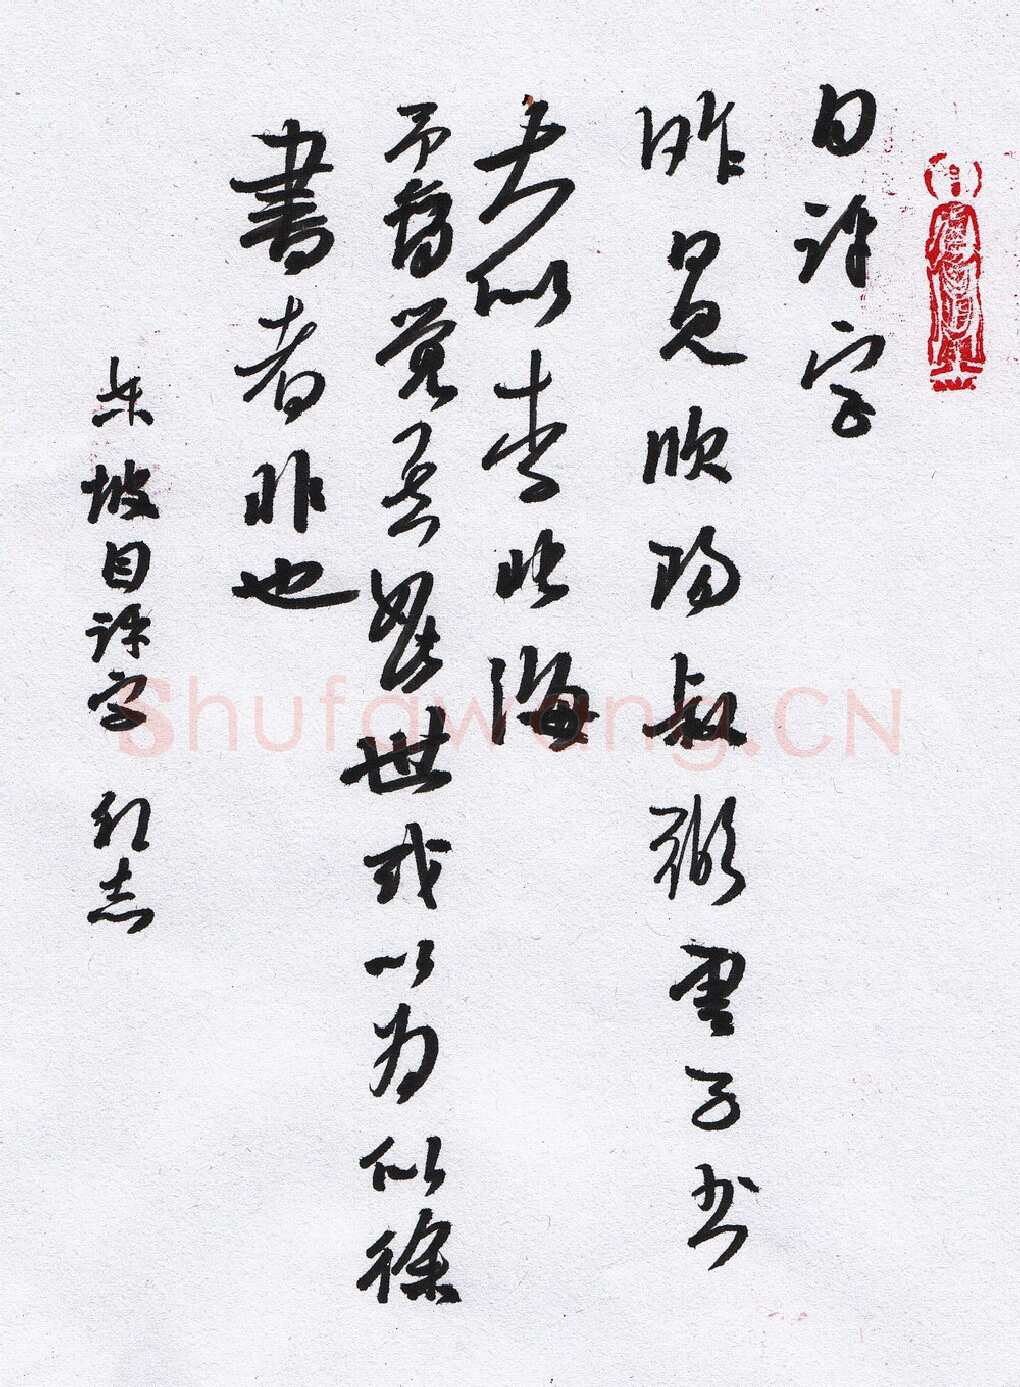 自评字
昨見欧阳叔弼雲子书
大似李北海
予亦自觉其如此世或以为似徐
書者非也
东坡自评字 志
Shufawang.CN